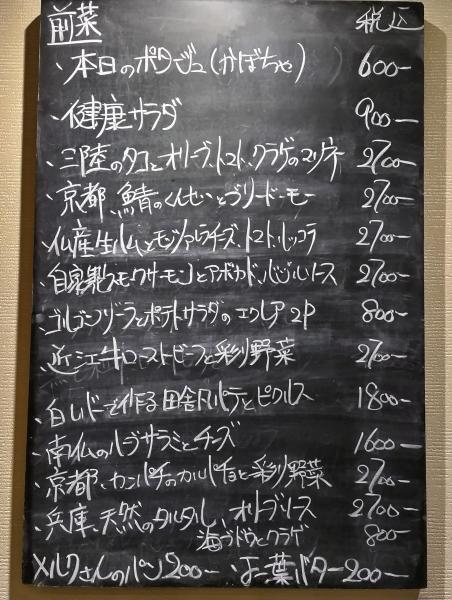 前菜 税込
、本日のポタージュ(かぼちゃ) 600-
、健康サラダ 900-
、三陸のタコとオリーブ、トマト、クラゲのマリネ 2700-
、京都、鯖のくんせいとブリードーモー 2700-
、仏産生ハムとモッツァレラチーズ、トマト、ルッコラ 2700-
、自家製スモークサーモンとアボカド、バジルソース 2700-
、ゴルゴンゾーラとポテトサラダのエクレア2P 800-
、近江牛ローストビーフと彩り野菜 2700-
、白レバーで作る田舎風パテとピクルス 1800-
、南仏のハブサラミとチーズ 1600-
、京都、カンパチのカルパチョと彩り野菜 2700-
、兵庫、天然のタルタル、オリーブソース 2700-
海ブドウとクラゲ 800-
メルクさんのパン200- 、よつ葉バター200-